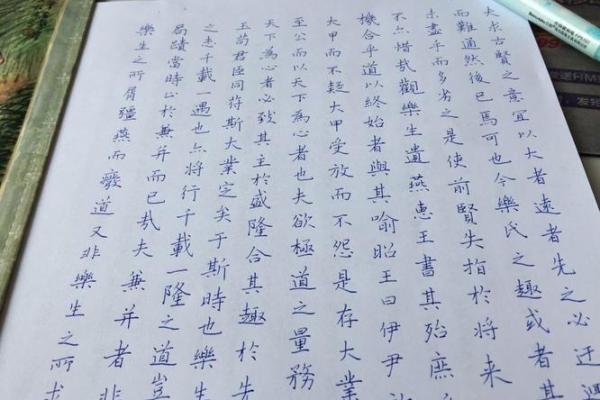 夫求古賢之意宜以大者遠者先之必迂迴
而難通然後已馬可也今樂氏之趣或者其
未盡乎而多劣之是使前賢失指於将来
不亦惜哉觀樂生遺燕惠王書其殆庶
機合乎道以終始者與其喻昭王曰伊尹
大甲而不疑大甲受放而不怨是存大業
至公而以天下為心者也夫欲極道之量務
天下為心者必致其主於盛隆合其趣於先
王苟君臣同符斯大業定矣于斯時也樂生
之志千載一遇也亦将行千載一隆之道豈
局蹟當時止於兼并而已哉夫兼并者非
樂生之所屑彊燕而廢道又非樂生之所求